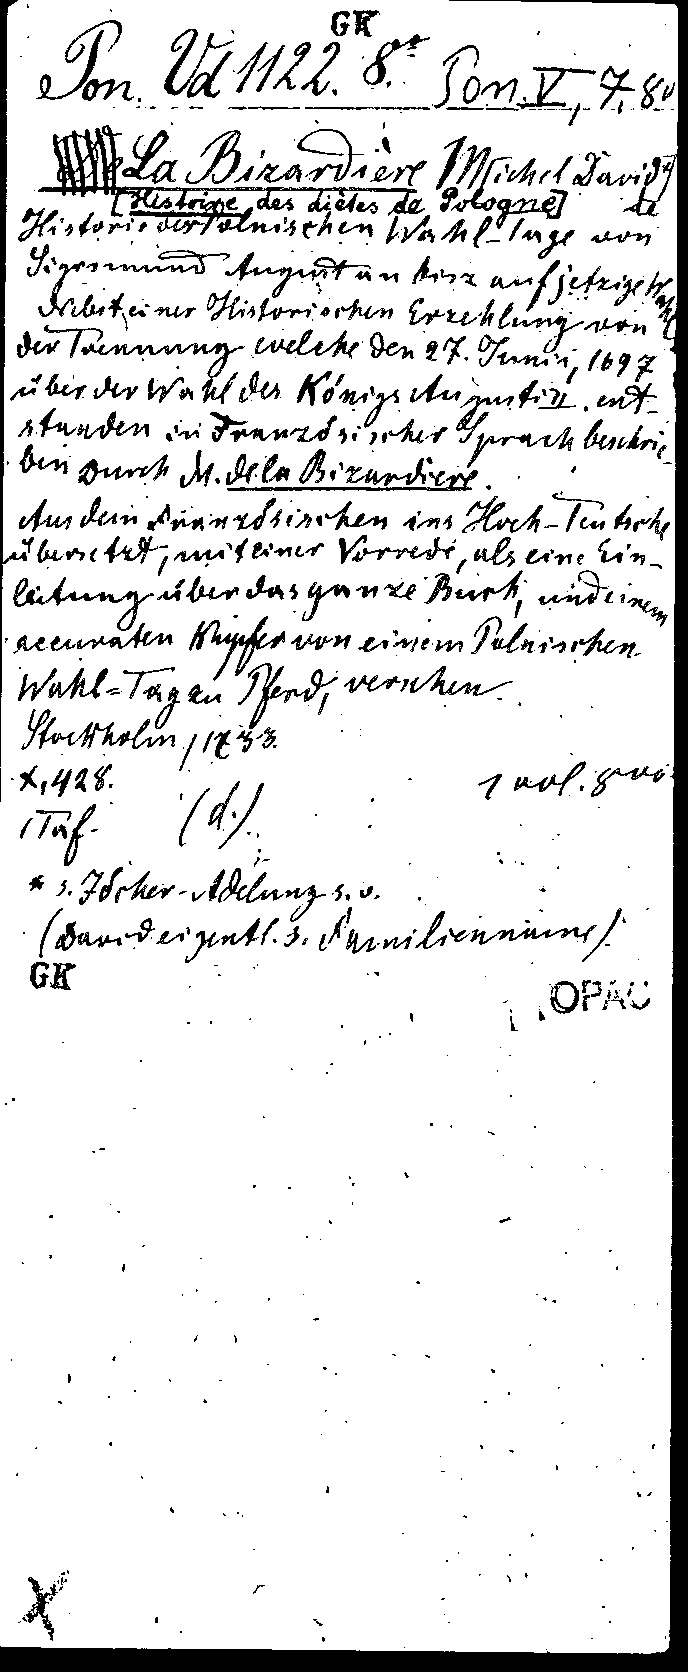 GK
Pon. Vd 1122. 8°. Pon. V, 7, 8°
La Bizardière Michel David*)
[Histoire des diètes de Pologne] de
Historie der Polnischen Wahl-Tage von
Sigesmund August an bisz auf jetzige Wahl
Nebst einer Historischen Erzehlung von
der Trennung welche den 27. Junii, 1697
über der Wahl des Königs Augusti II. ent-
standen in Französischer Sprach beschrie-
ben durch M. de la Bizardiere.
Aus dem Französischen ins Hoch-Teutsche
übersetzt, mit einer Vorrede, als eine Ein-
leitung über das ganze Buch, und einem
accuraten Kupfer von einem Polnischen
Wahl=Tag zu Pferd, versehen.
Stockholm, 1733.
X, 428. 1 vol. 8vo
1 Taf. (d.)
* s. Jöcher-Adelung s. v.
(David eigentl. s. Familienname)
GK
OPAC